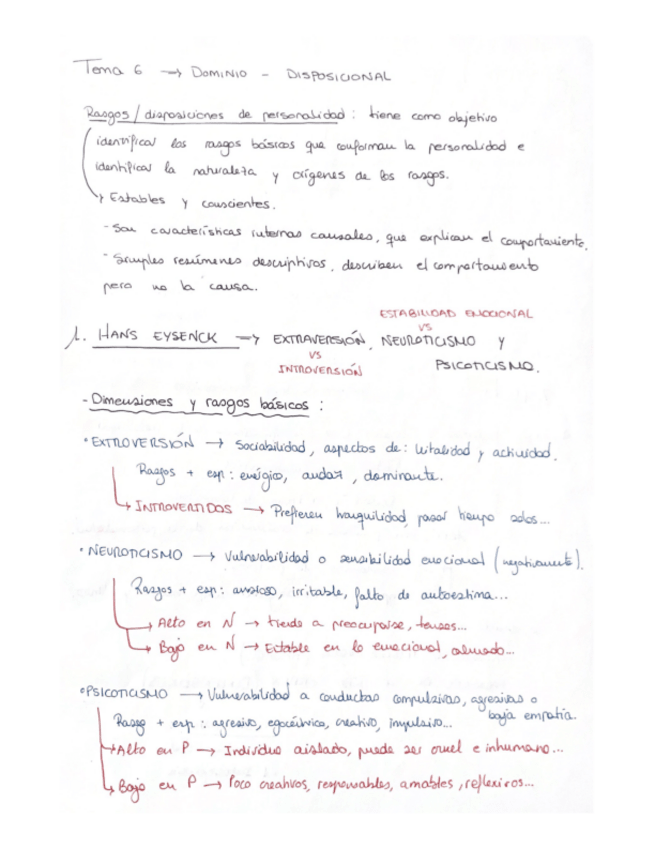 Tema 6 → DOMINIO - DISPOSICIONAL
Rasgos / disposiciones de personalidad : tiene como objetivo
identificar los rasgos básicos que conforman la personalidad e
identificar la naturaleza y orígenes de los rasgos.
→ Estables y conscientes.
- Son características internas causales, que explican el comportamiento.
- Simples resúmenes descriptivos, describen el comportamiento
pero no la causa.
ESTABILIDAD EMOCIONAL
vs
1. HANS EYSENCK → EXTRAVERSIÓN, NEUROTICISMO y
vs
INTROVERSIÓN
PSICOTICISMO.
- Dimensiones y rasgos básicos :
• EXTROVERSIÓN → Sociabilidad, aspectos de: vitalidad y actividad.
Rasgos + esp: enérgico, audaz, dominante.
→ INTROVERTIDOS → Prefieren tranquilidad pasar tiempo solos...
• NEUROTICISMO → Vulnerabilidad o sensibilidad emocional (negativamente).
Rasgos + esp: ansioso, irritable, falto de autoestima...
→ Alto en N → tiende a preocuparse, tensos...
→ Bajo en N → Estable en lo emocional, calmado...
• PSICOTICISMO → Vulnerabilidad a conductas compulsivas, agresivas o
baja empatía.
Rasgo + esp: agresivo, egocéntrico, creativo, impulsivo...
→ Alto en P → Individuo aislado, puede ser cruel e inhumano...
→ Bajo en P → Poco creativos, responsables, amables, reflexivos...